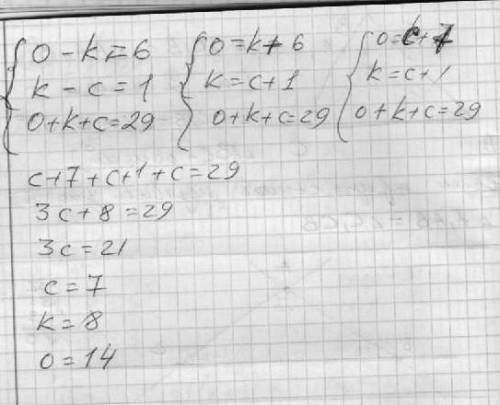 0 - k = 6
k - c = 1
0 + k + c = 29
0 = k + 6
k = c + 1
0 + k + c = 29
0 = c + 7
k = c + 1
0 + k + c = 29
c + 7 + c + 1 + c = 29
3c + 8 = 29
3c = 21
c = 7
k = 8
0 = 14